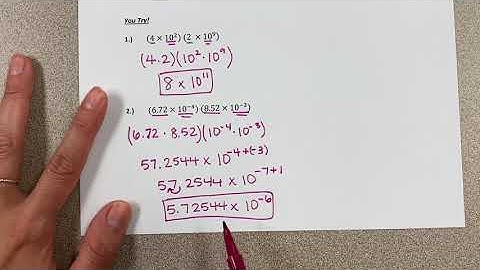 You Try!
1.) (4 × 10²) (2 × 10⁹)
(4·2)(10²·10⁹)
8 × 10¹¹
2.) (6.72 × 10⁻⁴) (8.52 × 10⁻³)
(6.72 · 8.52)(10⁻⁴·10⁻³)
57.2544 × 10⁻⁴⁺⁽⁻³⁾
57.2544 × 10⁻⁷⁺¹
5.72544 × 10⁻⁶